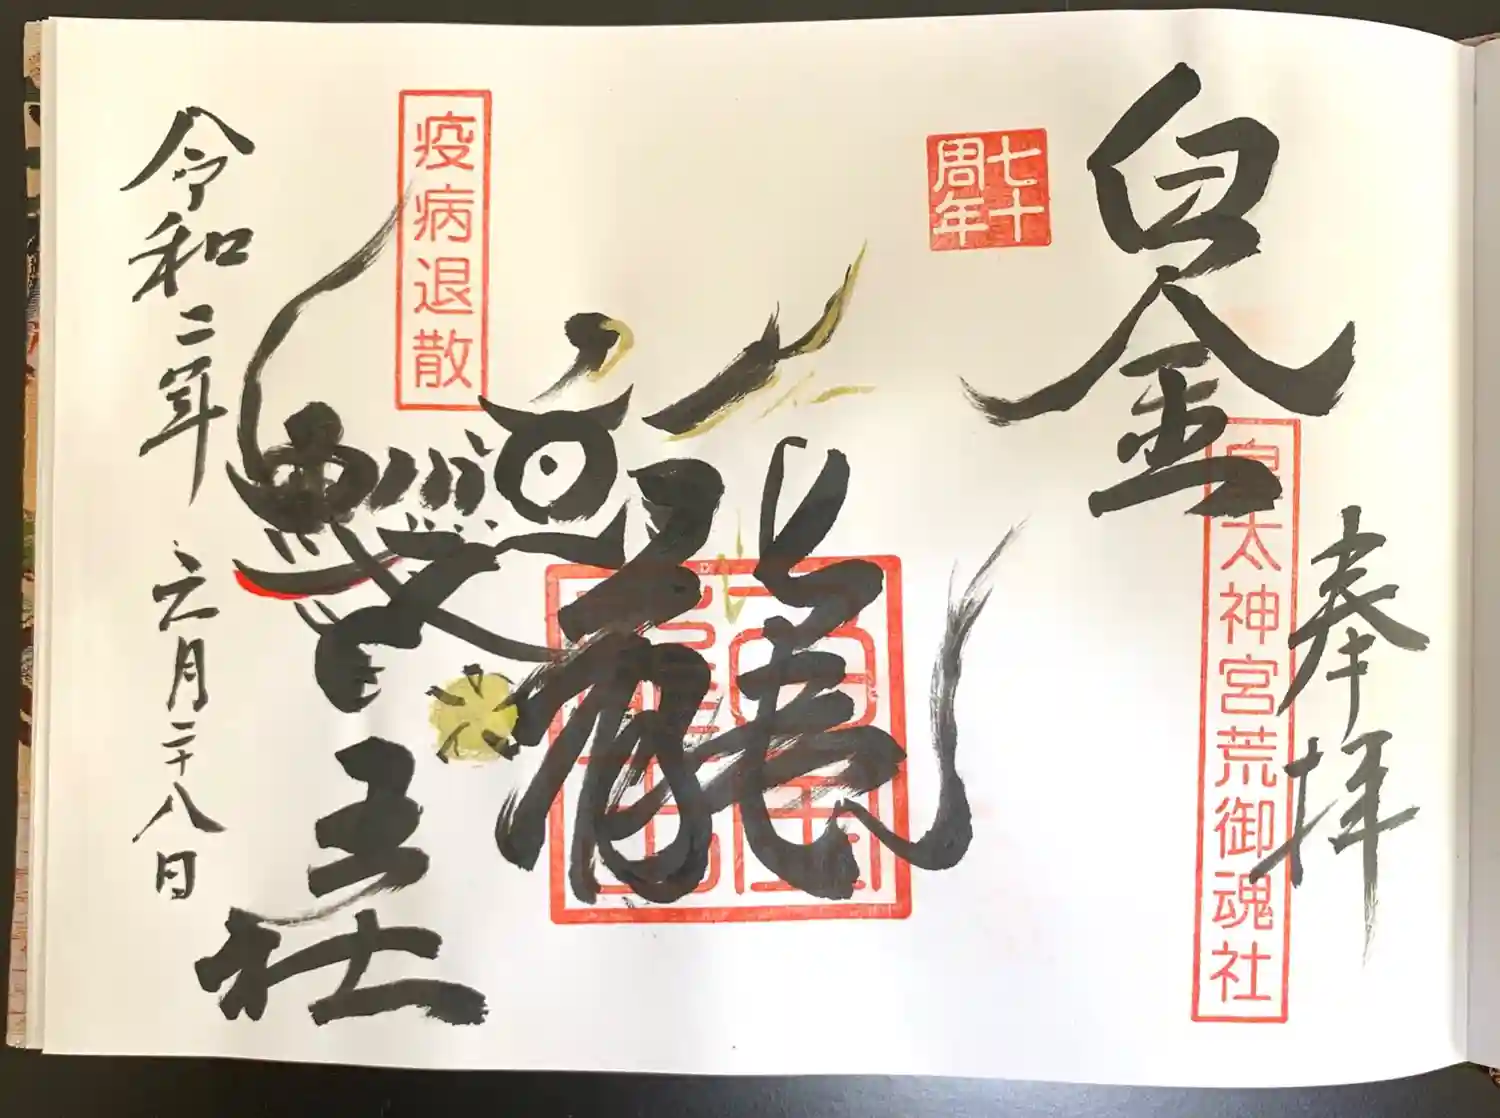 奉拝
皇太神宮荒御魂社
白金
七十
周年
龍
王社
疫病退散
令和二年六月二十八日